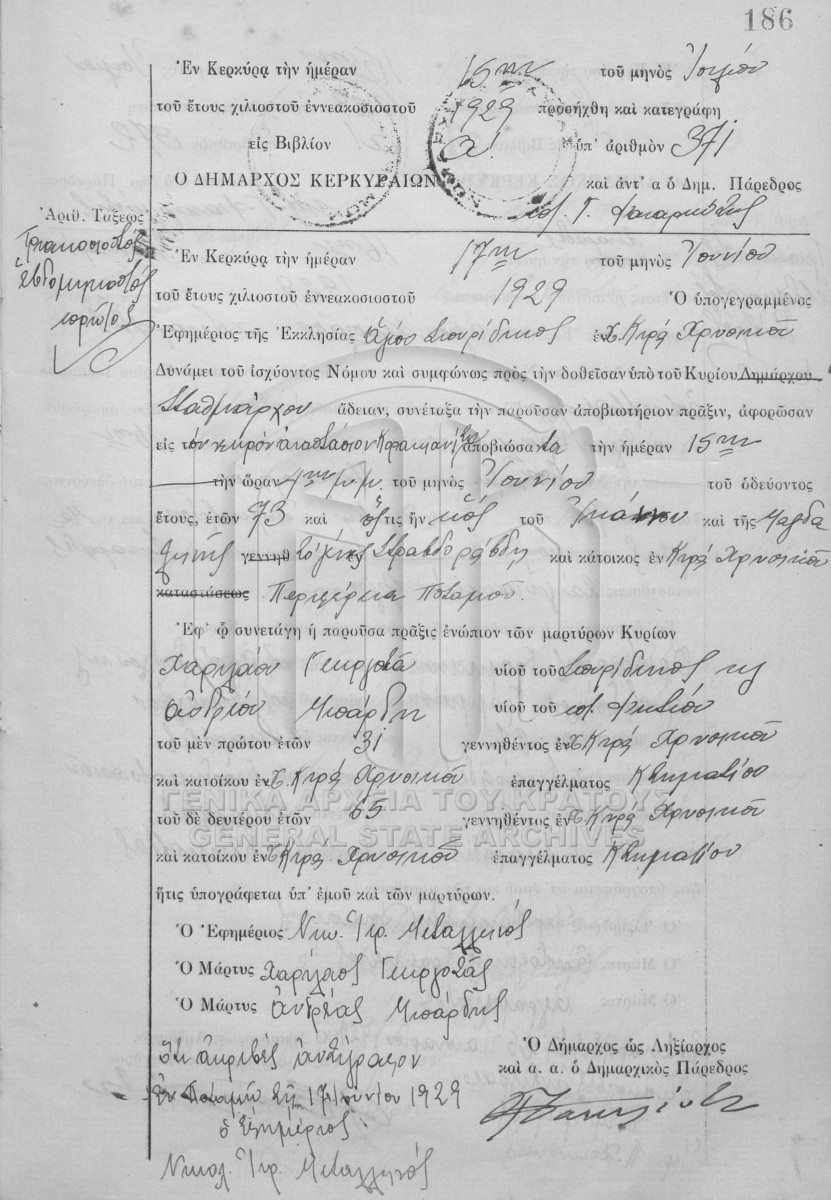 186
Ἐν Κερκύρᾳ τὴν ἡμέραν 15ην τοῦ μηνὸς Ἰουλίου
τοῦ ἔτους χιλιοστοῦ ἐννεακοσιοστοῦ 1929 προσήχθη καὶ κατεγράφη
εἰς Βιβλίον α' ὑπ' ἀριθμὸν 371
Ο ΔΗΜΑΡΧΟΣ ΚΕΡΚΥΡΑΙΩΝ καὶ ἀντ' α ὁ Δημ. Πάρεδρος
Ἀριθ. Τάξεως
Τριακοσιοστὸς
ἑβδομηκοστὸς
πρῶτος
Ἐν Κερκύρᾳ τὴν ἡμέραν 17ην τοῦ μηνὸς Ἰουνίου
τοῦ ἔτους χιλιοστοῦ ἐννεακοσιοστοῦ 1929 Ὁ ὑπογεγραμμένος
Ἐφημέριος τῆς Ἐκκλησίας Ἁγίου Σπυρίδωνος ἐν Χ. Κυρᾶ Χρυσικοῦ
Δυνάμει τοῦ ἰσχύοντος Νόμου καὶ συμφώνως πρὸς τὴν δοθεῖσαν ὑπὸ τοῦ Κυρίου Δημάρχου
Σταθμάρχου ἄδειαν, συνέταξα τὴν παροῦσαν ἀποβιωτήριον πρᾶξιν, ἀφορῶσαν
εἰς τὸν νεκρὸν Ἀναστάσιον ἀποβιώσαντα τὴν ἡμέραν 15ην
τὴν ὥραν 4ην μ.μ. τοῦ μηνὸς Ἰουνίου τοῦ ὁδεύοντος
ἔτους, ἐτῶν 73 καὶ ὅστις ἦν υἱὸς τοῦ Ἰωάννου καὶ τῆς Μαγδα
ληνῆς γεννηθ καὶ κάτοικος ἐν Κυρᾷ Χρυσικοῦ
καταστάσεως Περιφέρεια Ποταμοῦ.
Ἐφ' ᾧ συνετάγη ἡ παροῦσα πρᾶξις ἐνώπιον τῶν μαρτύρων Κυρίων
Χαριλάου Γεωργοτᾶ υἱοῦ τοῦ Σπυρίδωνος καὶ
Ἀνδρέου Μπάρδη υἱοῦ τοῦ
τοῦ μὲν πρώτου ἐτῶν 31 γεννηθέντος ἐν Χ Κυρᾶ Χρυσικοῦ
καὶ κατοίκου ἐν Χ. Κυρᾶ Χρυσικοῦ ἐπαγγέλματος Κτηματίου
ΓΕΝΙΚΑ ΑΡΧΕΙΑ ΤΟΥ ΚΡΑΤΟΥΣ
τοῦ δὲ δευτέρου ἐτῶν 65 γεννηθέντος ἐν Χ Κυρᾶ Χρυσικοῦ
GENERAL STATE ARCHIVES
καὶ κατοίκου ἐν Χ Κυρᾶ Χρυσικοῦ ἐπαγγέλματος Κτηματίου
ἥτις ὑπογράφεται ὑπ' ἐμοῦ καὶ τῶν μαρτύρων.
Ὁ Ἐφημέριος Νικ. Ἱερ. Μεταλληνός
Ὁ Μάρτυς Χαρίλαος Γεωργοτᾶς
Ὁ Μάρτυς Ἀνδρέας Μπάρδης
Ὅτι ἀκριβὲς ἀντίγραφον
Ἐν Ποταμῷ τῇ 17 Ἰουνίου 1929
ὁ Ἐφημέριος
Νικολ. Ἱερ. Μεταλληνός
Ὁ Δήμαρχος ὡς Ληξίαρχος
καὶ α. α. ὁ Δημαρχικὸς Πάρεδρος